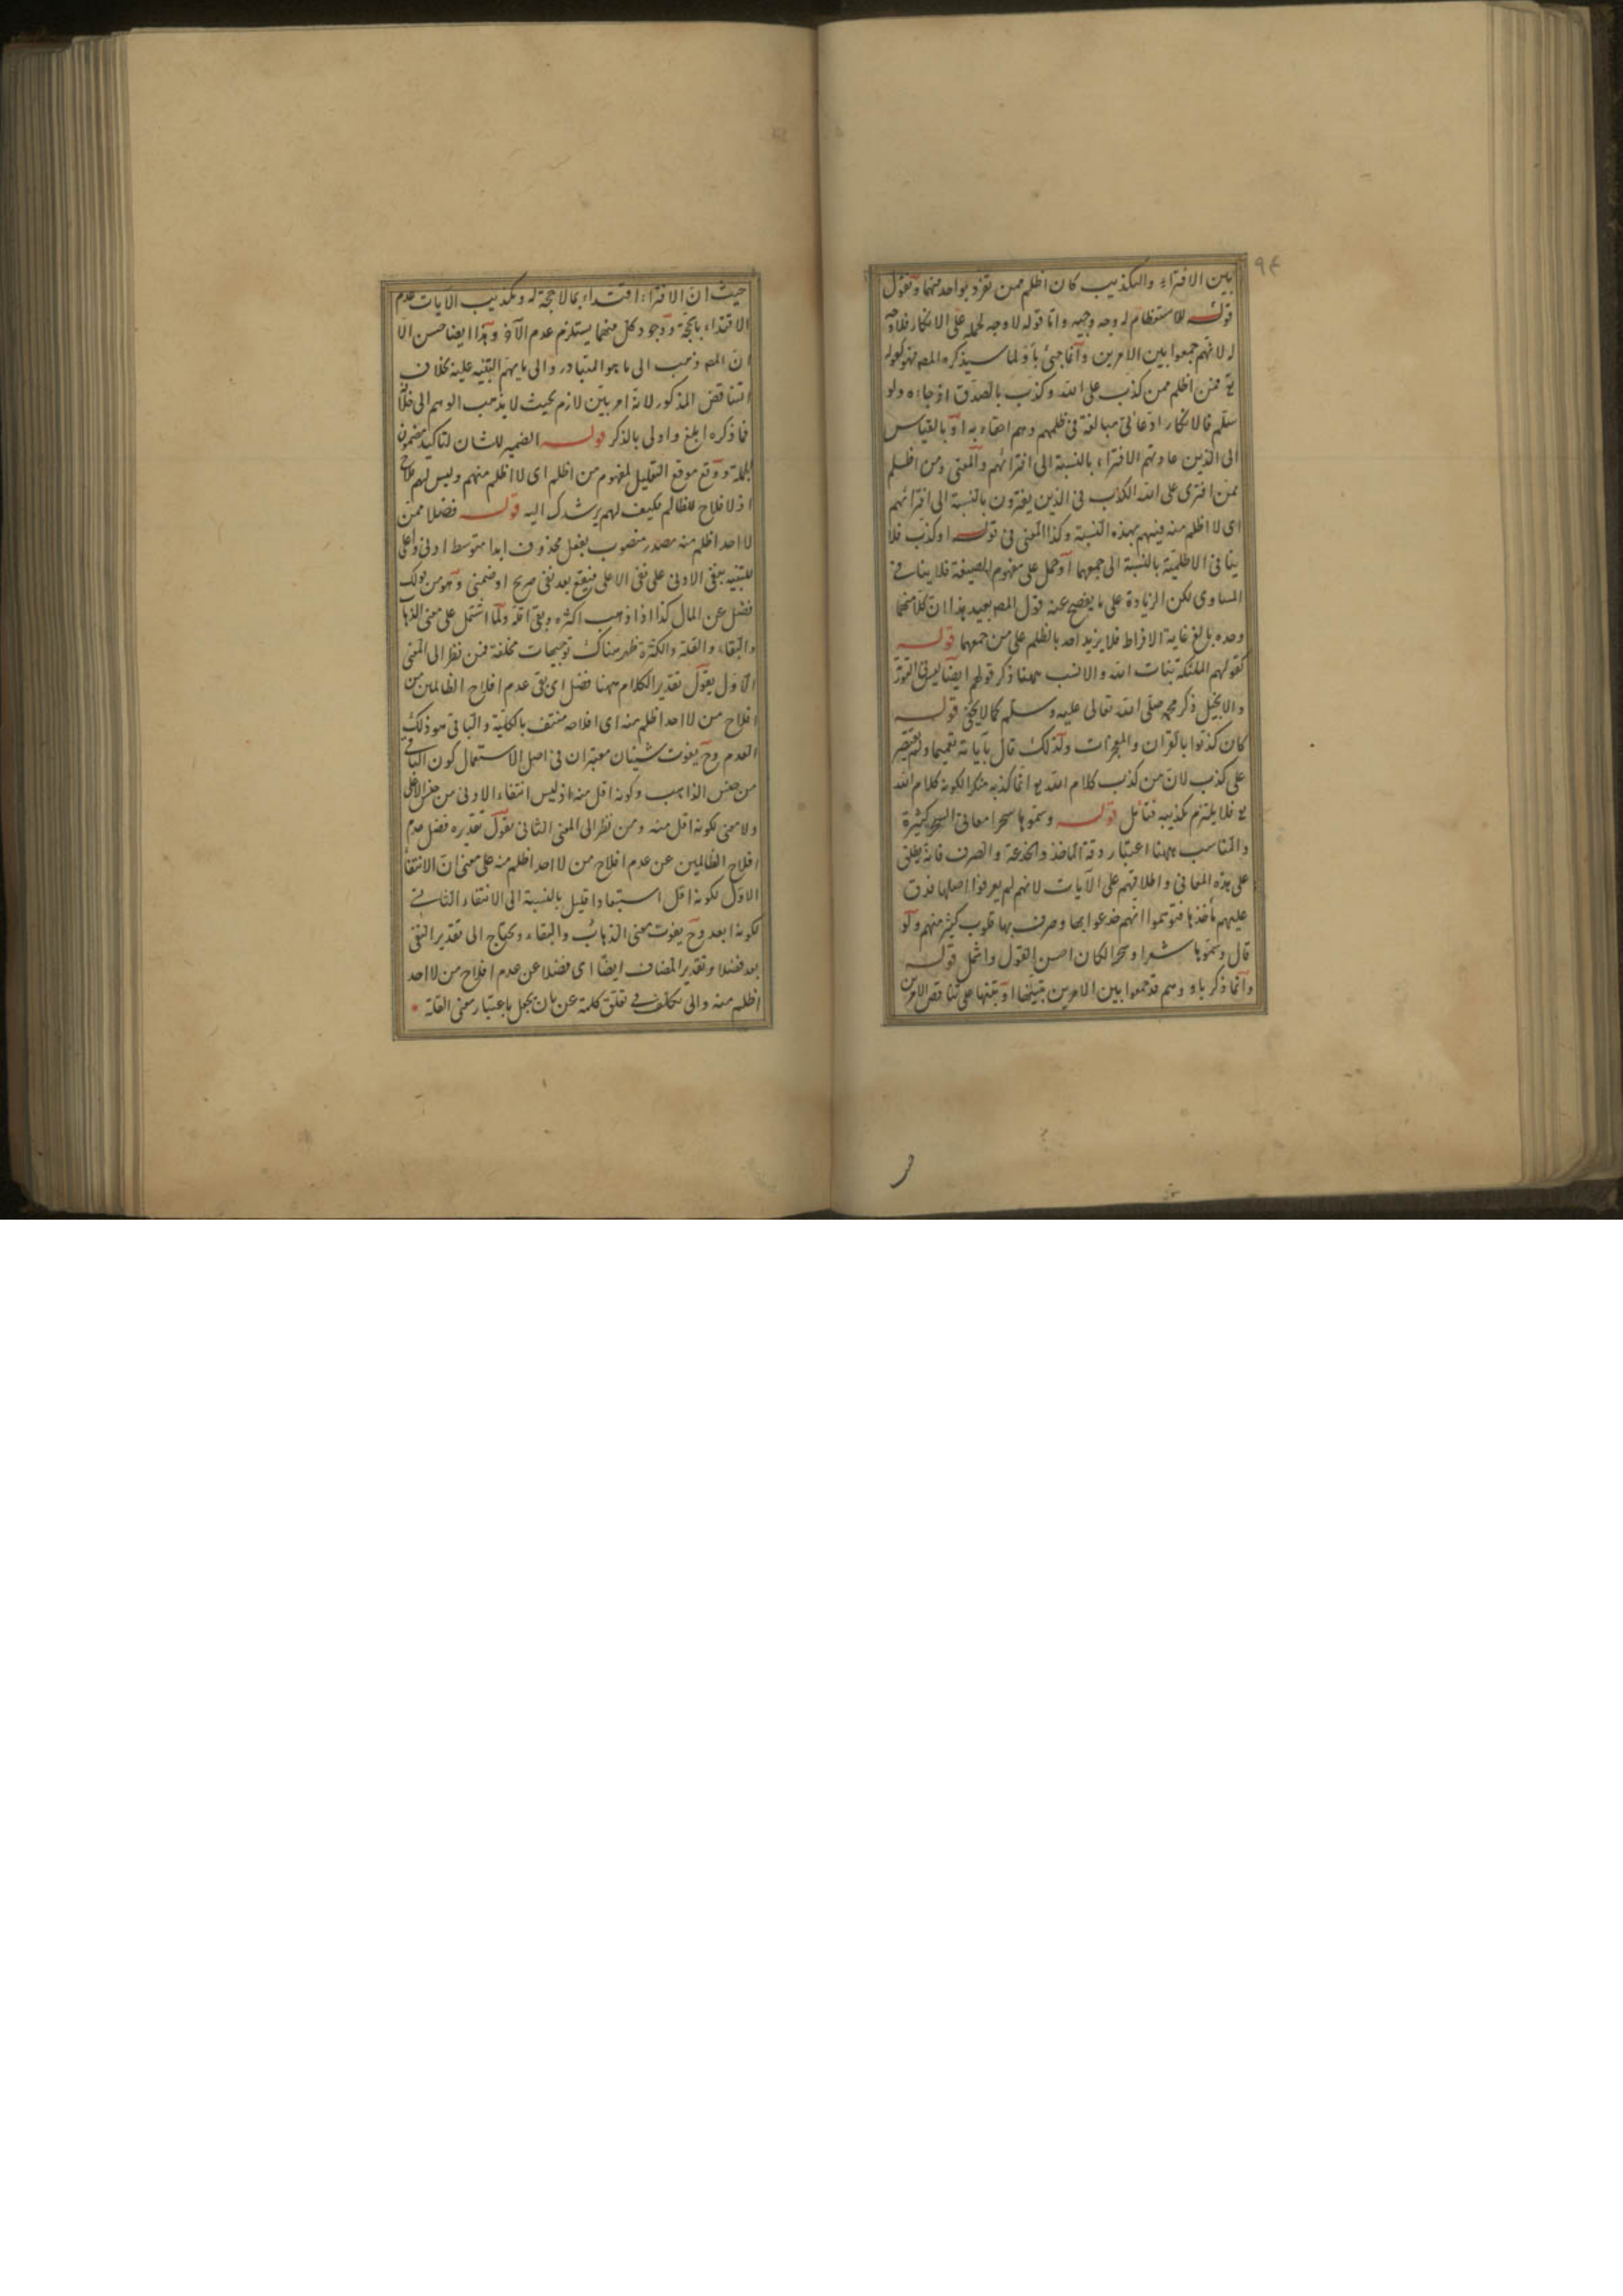 ٩٤
بين الافتراء والتكذيب كان اظلم ممن تفرد بواحد منهما ونقول
قوله للاستعظام له وجه وجيه واما قوله لا وجه لحمله على الانكار فلا وجه
له لانهم جمعوا بين الامرين وانما جئ باو لما سيذكره المصـ فهو كقوله
تع فمن اظلم ممن كذب على الله وكذب بالصدق اذ جاءه ولو
سلم فالانكار ادعائى مبالغة فى ظلمهم وهم احقاء به او بالقياس
الى الذين عادتهم الافتراء بالنسبة الى افترائهم والمعنى ومن اظلم
ممن افترى على الله الكذب فى الذين يفترون بالنسبة الى افترائهم
اى لا اظلم منه فيهم بهذه النسبة وكذا المعنى فى قوله او كذب فلا
ينافى الاظلمية بالنسبة الى جمعهما او حمل على مفهوم الصيغة فلا ينافى
المساوى لكن الزيادة على ما يفصح عنه قول المصـ بعيد هذا ان كلا منهما
وحده بالغ غاية الافراط فلا يزيد احد بالظلم على من جمعهما قوله
كقولهم الملئكة بنات الله والانسب ههنا ذكر قولهم ايضا ليس فى التورية
والانجيل ذكر محمد صلى الله تعالى عليه وسلم كما لا يخفى قوله
كان كذبوا بالقران والمعجزات ولذلك قال بآياته تعميما ولم يقتصر
على كذب لان من كذب كلام الله تع انما كذبه منكرا لكونه كلام الله
تع فلا يلتزم تكذيبه فتأمل قوله وسموها سحرا معانى السحر كثيرة
والمناسب ههنا اعتبار دقة الماخذ والخدعة والصرف فانه يطلق
على هذه المعانى واطلاقهم على الآيات لانهم لم يعرفوا اصلها فدق
عليهم مأخذها فتوهموا انهم خدعوا بها وصرف بها قلوب كثير منهم ولو
قال وسموها شعرا وسحرا لكان احسن القول واشمل قوله
وانما ذكر باو وهم قد جمعوا بين الامرين تنبيها على تناقض الامرين
حيث ان الافتراء اقتداء بما لا حجة له وتكذيب الآيات عدم
الاقتداء بالحجة ووجود كل منهما يستلزم عدم الآخر وهذا ايضا حسن الا
ان المصـ ذهب الى ما هو المتبادر والى ما يهم التنبيه عليه بخلاف
التناقض المذكور لانه امر بين لازم بحيث لا يذهب الوهم الى خلافه
فما ذكره ابلغ واولى بالذكر قوله الضمير للشان لتاكيد مضمون
الجملة ووقع موقع التعليل لمفهوم من اظلم اى لا اظلم منهم وليس لهم فلاح
اذ لا فلاح للظالم فكيف لهم يرشدك اليه قوله فضلا ممن
لا احد اظلم منه مصدر منصوب بفعل محذوف ابدا متوسط ادنى واعلى
للتنبيه بنفى الادنى على نفى الاعلى فيقع بعد نفى صريح او ضمنى وهو من قولك
فضل عن المال كذا اذا ذهب اكثره وبقى اقله ولما اشتمل على معنى الذهاب
والبقاء والقلة والكثرة ظهر هناك توجيهات مختلفة فمن نظر الى المعنى
الاول يقول تقدير الكلام ههنا فضل اى بقى عدم افلاح الظالمين من
افلاح من لا احد اظلم منه اى افلاحه منتف بالكلية والباقى هو ذلك
العدم وح يفوت شيئان معتبران فى اصل الاستعمال كون الباقى
من جنس الذاهب وكونه اقل منه اذ ليس انتفاء الادنى من جنس الاعلى
ولا معنى لكونه اقل منه ومن نظر الى المعنى الثانى يقول تقديره فضل عدم
افلاح الظالمين عن عدم افلاح من لا احد اظلم منه على معنى ان الانتفاء
الاول لكونه اقل استبعادا قليل بالنسبة الى الانتفاء الثانى
لكونه ابعد وح يفوت معنى الذهاب والبقاء ويحتاج الى تقدير النفى
بعد فضلا وتقدير المضاف ايضا اى فضلا عن عدم افلاح من لا احد
اظلم منه والى تكلف فى تعلق كلمة عن بان يجعل باعتبار معنى القلة